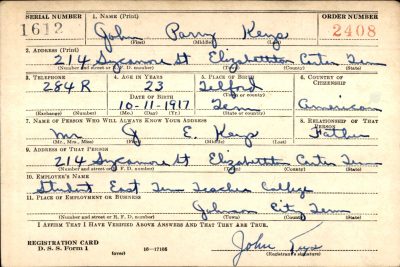 SERIAL NUMBER 1. NAME (Print) ORDER NUMBER
1612 John Parry Keys 2408
(First) (Middle) (Last)
2. ADDRESS (Print)
214 Sycamore St Elizabethton Carter Tenn
(Number and street or R. F. D. number) (Town) (County) (State)
3. TELEPHONE 4. AGE IN YEARS 5. PLACE OF BIRTH 6. COUNTRY OF CITIZENSHIP
284 R 23 Telford
DATE OF BIRTH (Town or county)
10-11-1917 Tenn American
(Exchange) (Number) (Mo.) (Day) (Yr.) (State or country)
7. NAME OF PERSON WHO WILL ALWAYS KNOW YOUR ADDRESS 8. RELATIONSHIP OF THAT PERSON
Mr J E. Keys Father
(Mr., Mrs., Miss) (First) (Middle) (Last)
9. ADDRESS OF THAT PERSON
214 Sycamore St Elizabethton Carter Tenn
(Number and street or R. F. D. number) (Town) (County) (State)
10. EMPLOYER'S NAME
Student East Tenn Teachers College
11. PLACE OF EMPLOYMENT OR BUSINESS
Johnson City Tenn
(Number and street or R. F. D. number) (Town) (County) (State)
I AFFIRM THAT I HAVE VERIFIED ABOVE ANSWERS AND THAT THEY ARE TRUE.
REGISTRATION CARD
D. S. S. Form 1 (over) 16-17105 (Registrant's signature)
John Keys